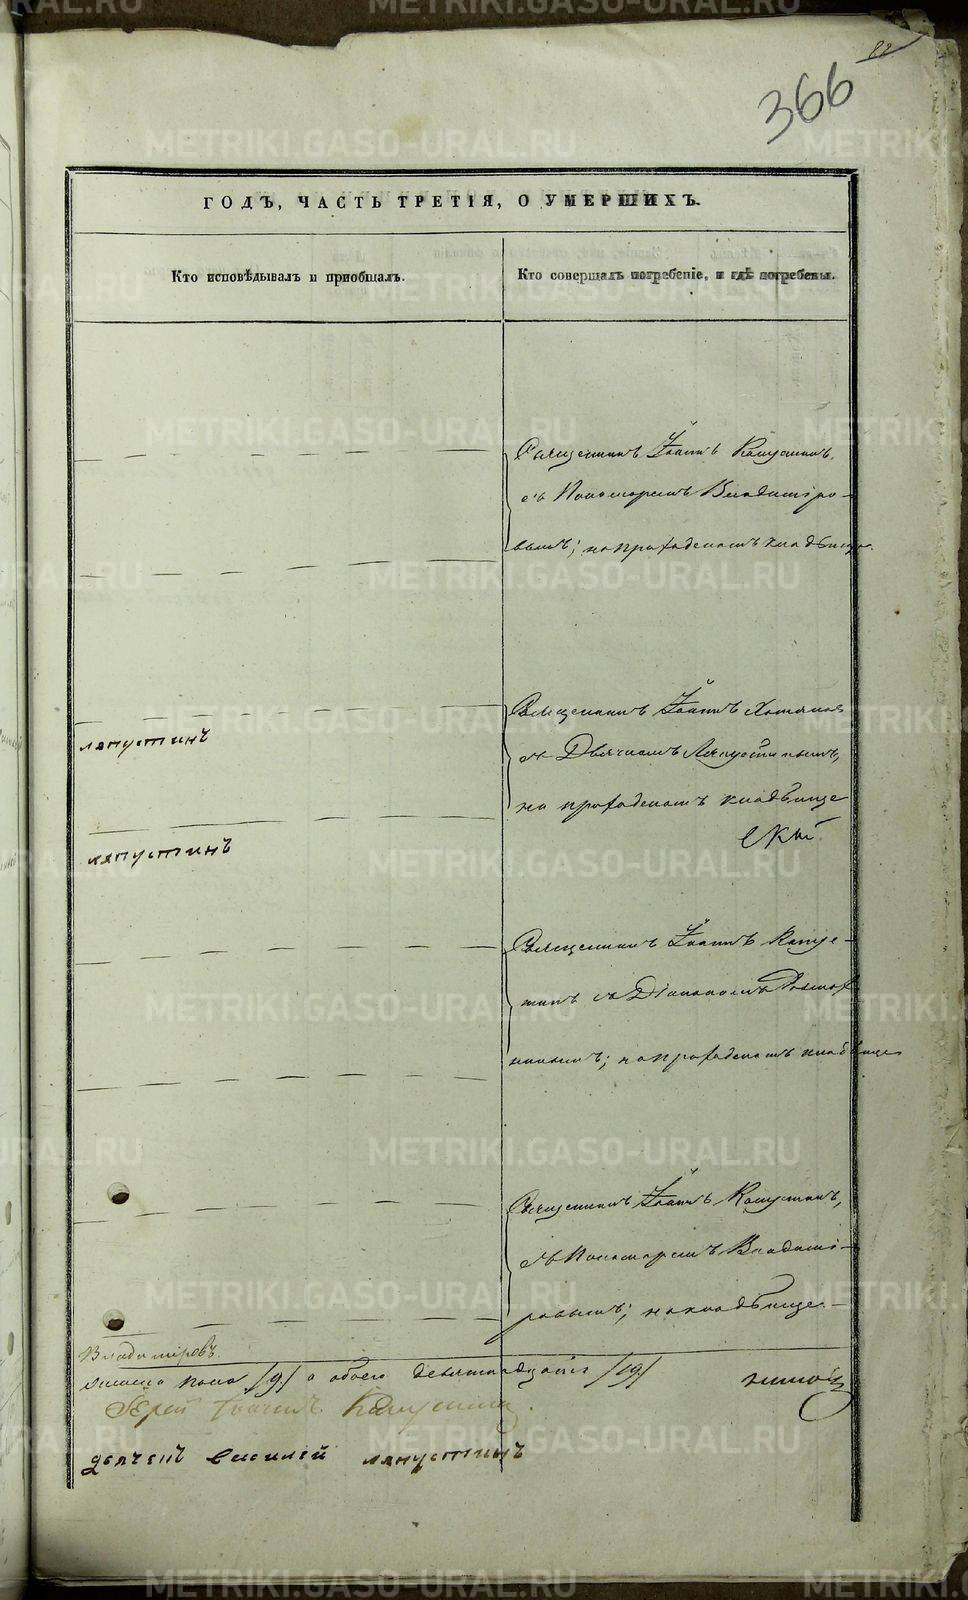 82
366
ГОДЪ, ЧАСТЬ ТРЕТІЯ, О УМЕРШИХЪ.
Кто исповѣдывалъ и пріобщалъ.
Кто совершалъ погребеніе, и гдѣ погребены.
Священникъ Іоаннъ Капустинъ,
съ Пономаремъ Владиміро-
вымъ; на приходскомъ кладбище.
Священникъ Іоаннъ
ляпустинъ
съ Дьячкомъ Ляпустинымъ,
на приходскомъ кладбище
ляпустинъ
Священникъ Іоаннъ Капус-
тинъ съ Діакономъ
на приходскомъ кладбище
Священникъ Іоаннъ Капустинъ,
съ Пономаремъ Владими-
ровымъ; на кладбище.
Владиміровъ.
пола /9/ а обоего девятнадцать /19/
Іерей Іоаннъ Капустинъ.
дьячекъ василей ляпустинъ
METRIKI.GASO-URAL.RU